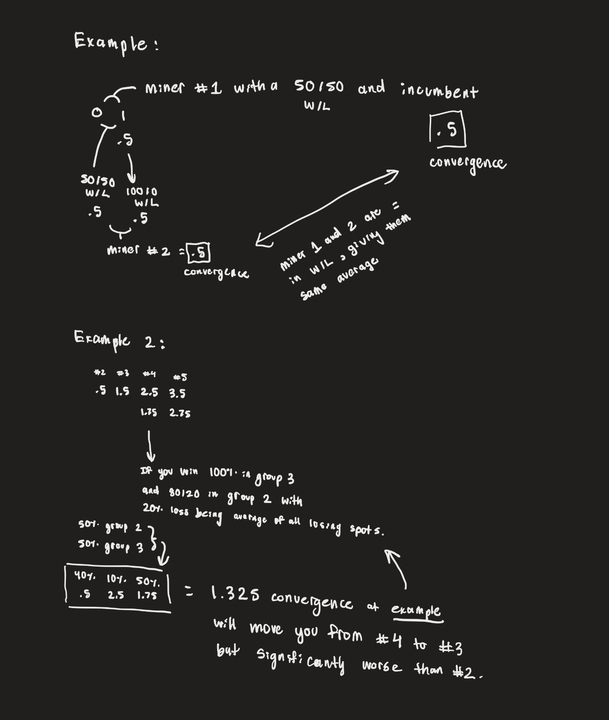 Example:
miner #1 with a 50/50 and incumbent
W/L
0 1
.5
.5
convergence
50/50 100/0
W/L W/L
.5 .5
miner #2 = .5
convergence
miner 1 and 2 are =
in W/L, giving them
same average
Example 2:
#2 #3 #4 #5
.5 1.5 2.5 3.5
1.75 2.75
If you win 100% in group 3
and 80/20 in group 2 with
20% loss being average of all losing spots.
50% group 2
50% group 3
40% 10% 50%
.5 2.5 1.75
= 1.325 convergence at example
will move you from #4 to #3
but significantly worse than #2.